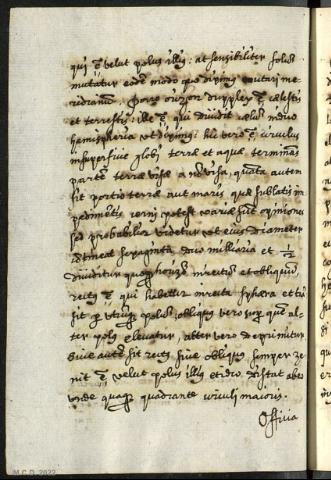 qui ē velut polus illiꝰ: at sensibiliter solus
mutatur eodē modo quo diximꝰ mutari me-
ridianum. Porro orizon duplex ē cælestis
et terrestris: ille ē qui dividit cælũ medio
hemispheria ut diximꝰ: hic vero ē circulus
in superficie globi terræ et aquæ terminans
partē terræ visã a nõ visa, quãta autem
sit portio terræ aut maris quæ sublatis im
pedimētis cerni potest variæ sũt opiniones
sed probabilior videtur ut eius diameter
cõtineat sexaginta duo milliaria et 1/2
dividitur quoqꝫ horizõ in rectũ et obliquũ,
rectꝰ ē qui habetur in recta sphæra et trã
sit ꝑ utrũqꝫ polũ; obliquꝰ vero suꝑ quē al-
ter polꝰ elevatur, alter vero deprimitur
sive autē sit rectꝰ sive obliquꝰ, semper ze-
nit ē velut polus illiꝰ et ideo distat ab eo
unde quaqꝫ quadrante circuli maioris.
Officia
M.C.D. 2022